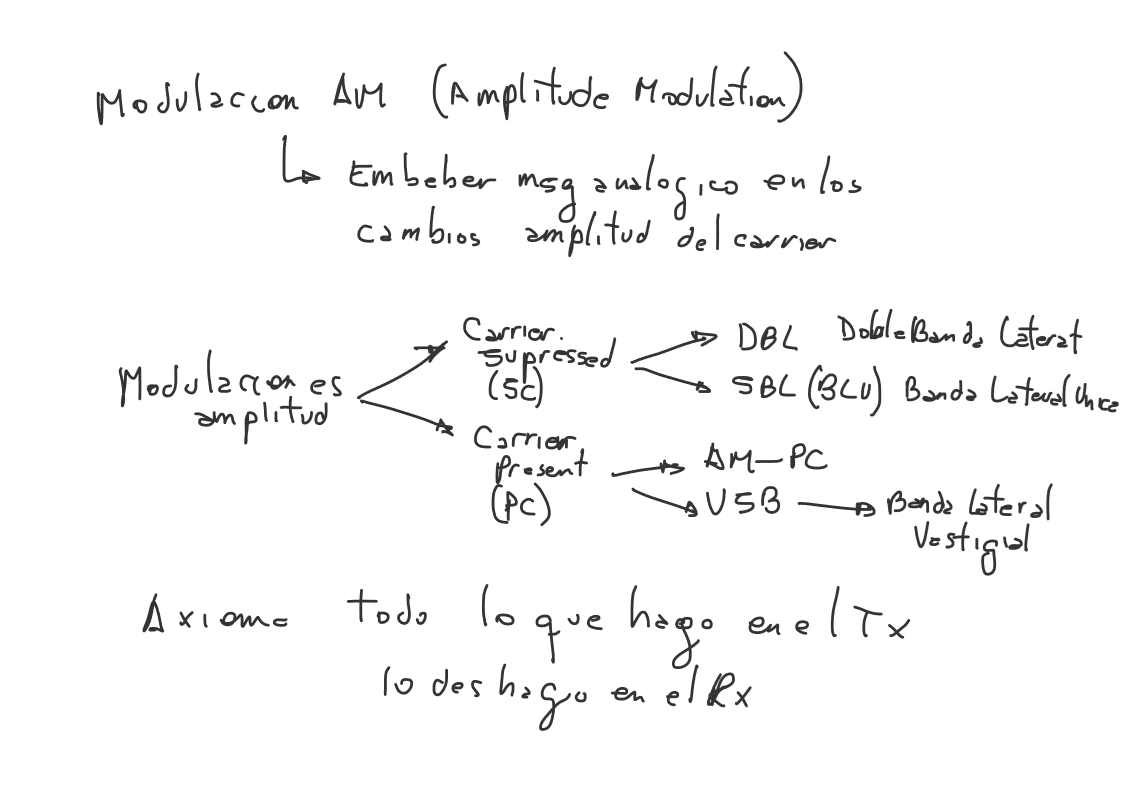 Modulacion AM (Amplitude Modulation)
Embeber msg analogico en los
cambios amplitud del carrier
Modulaciones
amplitud
Carrier
Supressed
(SC)
DBL Doble Banda Lateral
SBL (BLU) Banda Lateral Unica
Carrier
Present
(PC)
AM-PC
VSB
Banda Lateral
Vestigial
Axioma todo lo que hago en el Tx
lo deshago en el Rx